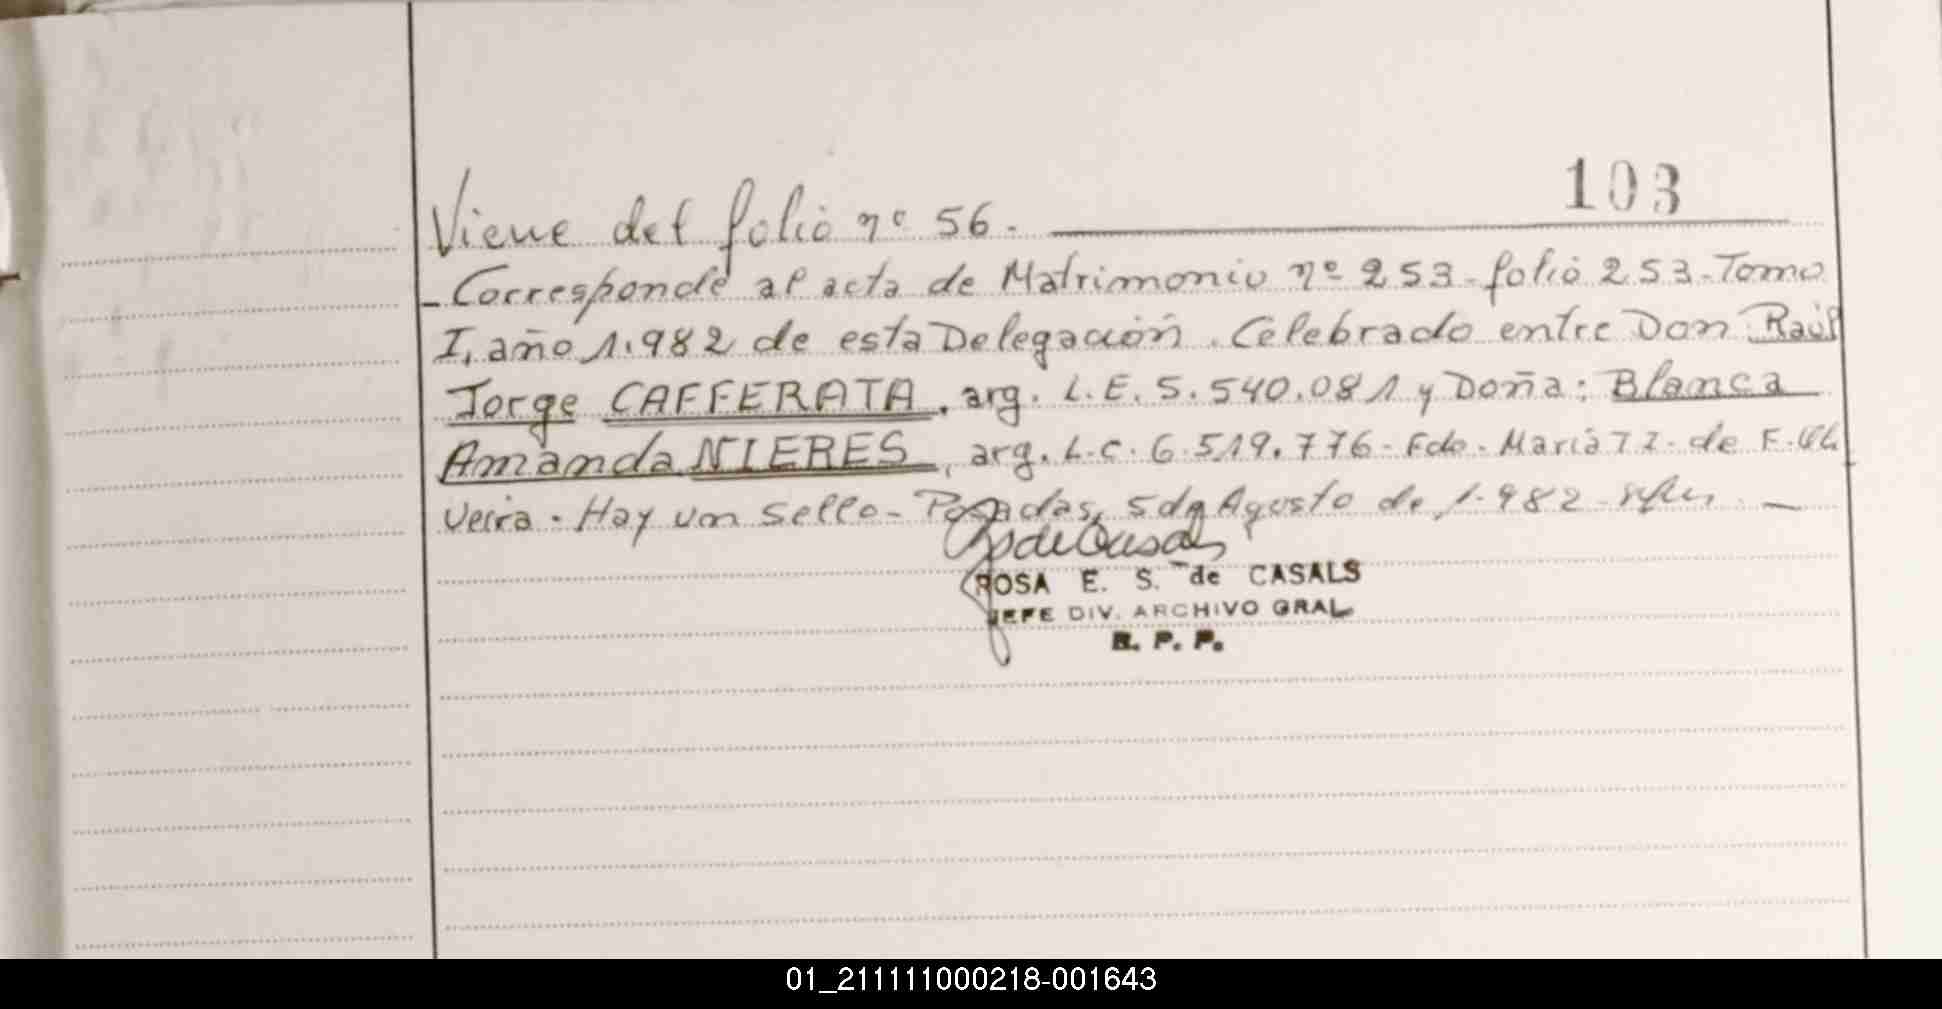 103
Viene del folio nº 56.
- Corresponde al acta de Matrimonio nº 253 - folio 253 - Tomo
I, año 1.982 de esta Delegación. Celebrado entre Don Raúl
Jorge CAFFERATA, arg. L.E. 5.540.081 y Doña: Blanca
Amanda NIERES, arg. L.C. 6.519.776 - Fdo. María de F.
veira. Hay un sello - Posadas, 5 de Agosto de 1.982 -
ROSA E. S. de CASALS
JEFE DIV. ARCHIVO GRAL
R. P. P.
01_211111000218-001643